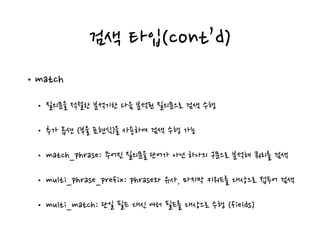 검색 타입(cont'd)
• match
• 질의문을 적절한 분석기한 다음 분석된 질의문으로 검색 수행
• 추가 옵션 (부울 표현식)을 사용하여 검색 수행 가능
• match_phrase: 주어진 질의문을 단어가 아닌 하나의 구문으로 분석해 쿼리를 검색
• multi_phrase_prefix: phrase와 유사, 마지막 키워드를 대상으로 접두어 검색
• multi_match: 단일 필드 대신 여러 필드를 대상으로 수행 (fields)